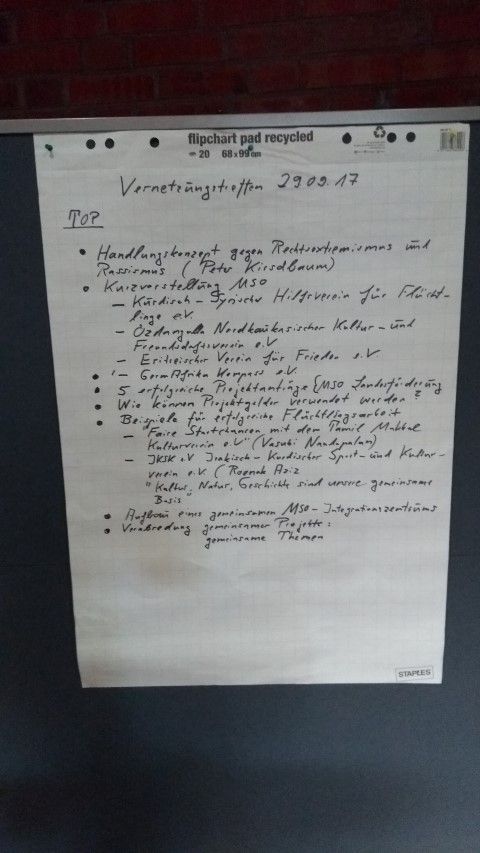 flipchart pad recycled
20 68x99cm
Vernetzungstreffen 29.09.17
TOP
• Handlungskonzept gegen Rechtsextremismus und
Rassismus (Peter Kirsdbaum)
• Kurzvorstellung MSO
– Kurdisch-Syrischer Hilfsverein für Flücht-
linge e.V.
– Nordkaukasischer Kultur- und
Freundschaftsverein e.V
– Eritreischer Verein für Frieden e.V
• – GermAfrika Kompass e.V.
• 5 erfolgreiche Projektanträge (MSO Landesförderung
• Wie können Projektgelder verwendet werden?
• Beispiele für erfolgreiche Flüchtlingsarbeit
– "Faire Startchancen mit dem Tamil Makkal
Kulturverein e.V" (Vasuki Nandapalan)
– IKSK e.V Irakisch-Kurdischer Sport- und Kultur-
verein e.V. (Roonak Aziz
"Kultur, Natur, Geschichte sind unsere gemeinsame
Basis"
• Aufbau eines gemeinsamen MSO-Integrationszentrums
• Verabredung gemeinsamer Projekte:
gemeinsame Themen
STAPLES